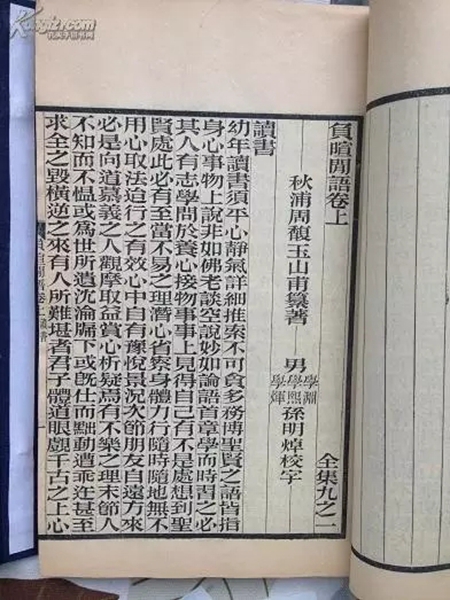 負暄閒語卷上 全集九之一
秋浦周馥玉山甫纂著 男 學淵 學熙 學煇 孫明焯校字
讀書
幼年讀書須平心靜氣詳細推索不可貪多務博聖賢之語皆指
身心事物上說非如佛老談空說妙如論語首章學而時習之必
其人有志學問於養心接物事事上見得自己有不是處想到聖
賢處此必有至當不易之理潛心省察身體力行隨時隨地無不
用心取法這行之有效心中自有豫悅景況次節朋友自遠方來
必是向道慕義之人觀摩取益賞心析疑焉有不樂之理末節人
不知而不慍或為世所遺沈淪牖下或旣仕而黜動遭乖迕甚至
求全之毀橫逆之來有人所難堪者君子體道眼觀千古之上心
負暄閒語卷上 讀書
Kongfz.com